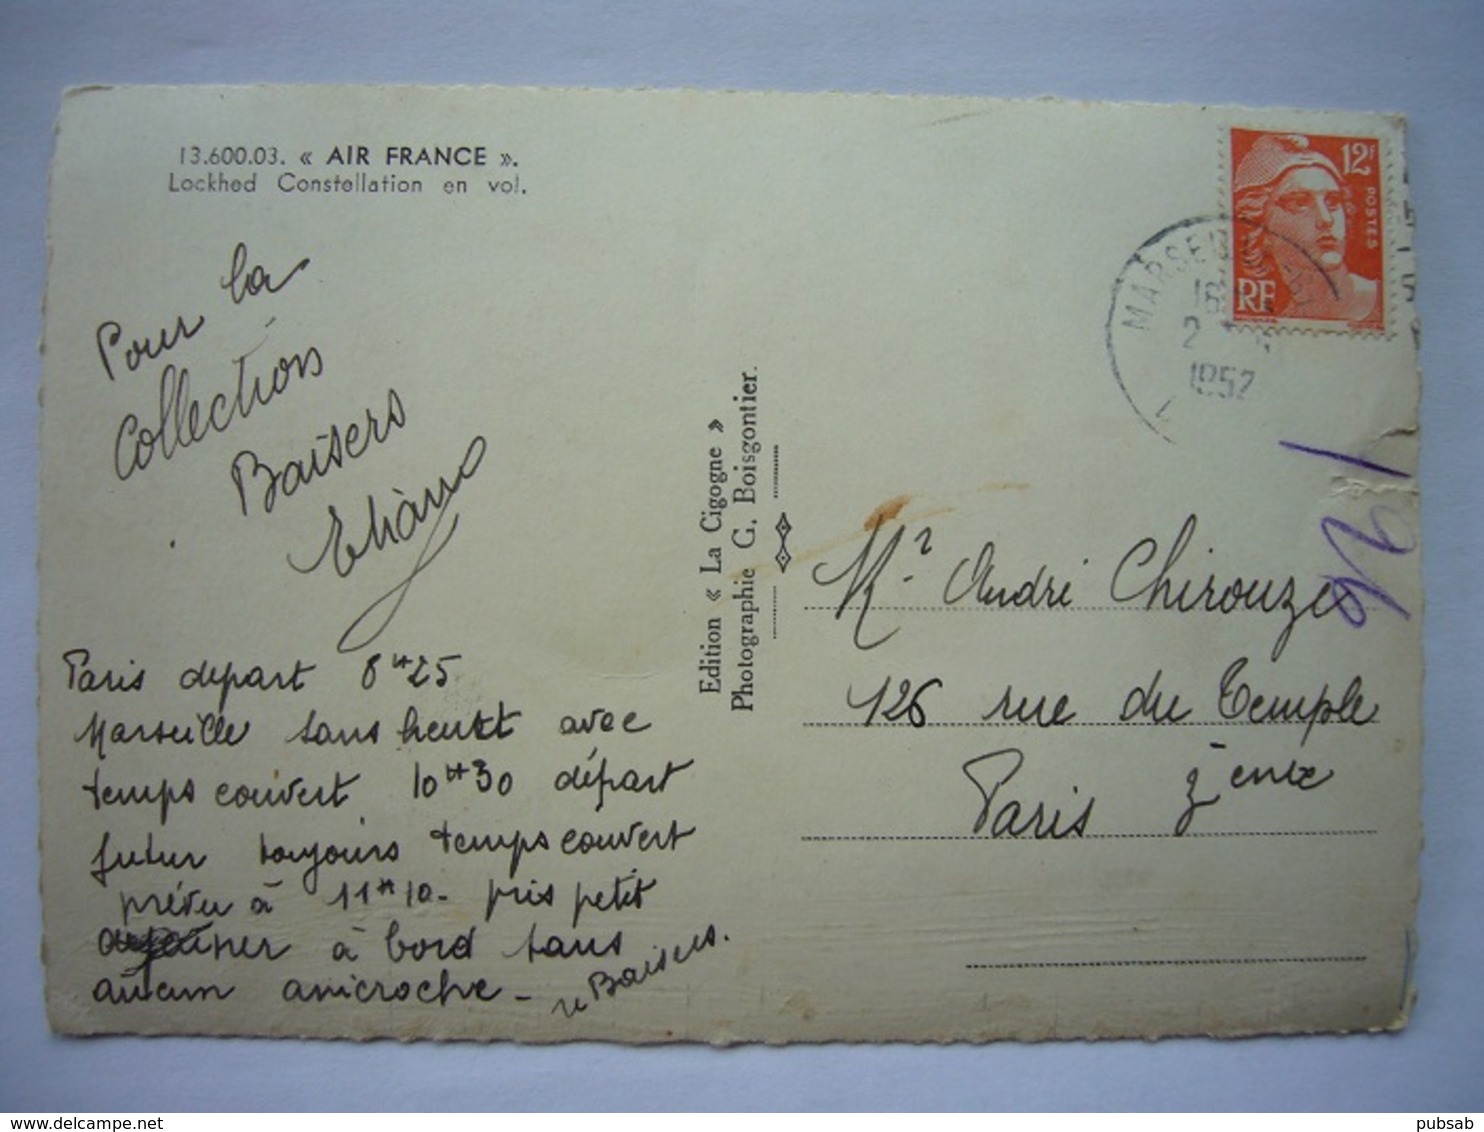 13.600.03. « AIR FRANCE ».
Lockhed Constellation en vol.
Pour la
Collection
Baisers
Paris depart 8H25
Marseille sans heurt avec
temps couvert 10H30 départ
futur toujours temps couvert
prévu à 11H10- pris petit
à bord sans
aucun anicroche -
Baisers.
Edition « La Cigogne »
Photographie G. Boisgontier.
12F
POSTES
RF
MARSEI
1952
Mr. André Chirouze
126 rue du Temple
Paris 3eme
delcampe.net
pubsab